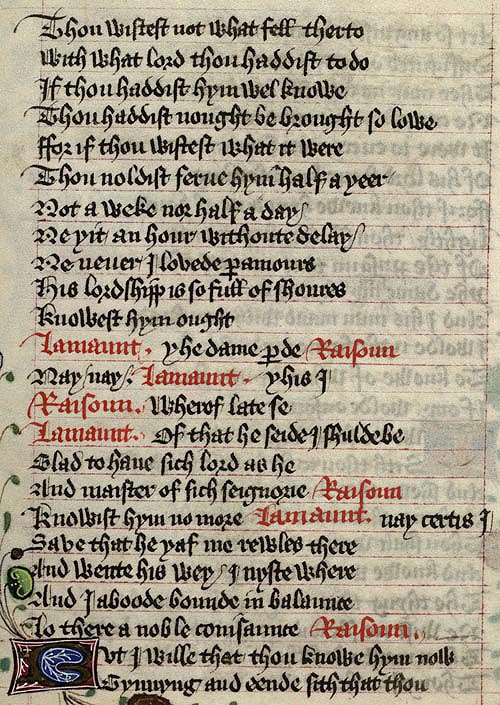 Thou wistest not what fell therto
With what lord thou haddist to do
If thou haddist hym wel knowe
Thou haddist nought be brought so lowe
ffor if thou wistest what it were
Thou noldist serue hym half a yeer
Not a weke nor half a day/
Ne yit an hour withoute delay/
Ne neuer I lovede ꝑamours
His lordshipp is so full of shoures
Knowest hym ought
Lamaunt. yhe dame ꝑde Raisoun
Nay/nay/. Lamaunt. yhis I
Raisoun. Wherof late se
Lamaunt. Of that he seide I shulde be
Glad to haue sich lord as he
And maister of sich seignorie Raisoun
Knowist hym no more Lamaunt. nay certis I
Save that he yaf me rewles there
And wente his wey/ I nyste where
And I aboode bounde in balaunce
Lo there a noble conisaunce Raisoun.
But I wille that thou knowe hym now
Gynnyng and eende sith that thou